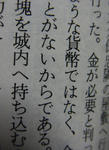 行った。金が必要と判
ような貨幣ではなく、
とがないからである。
塊を城内へ持ち込む